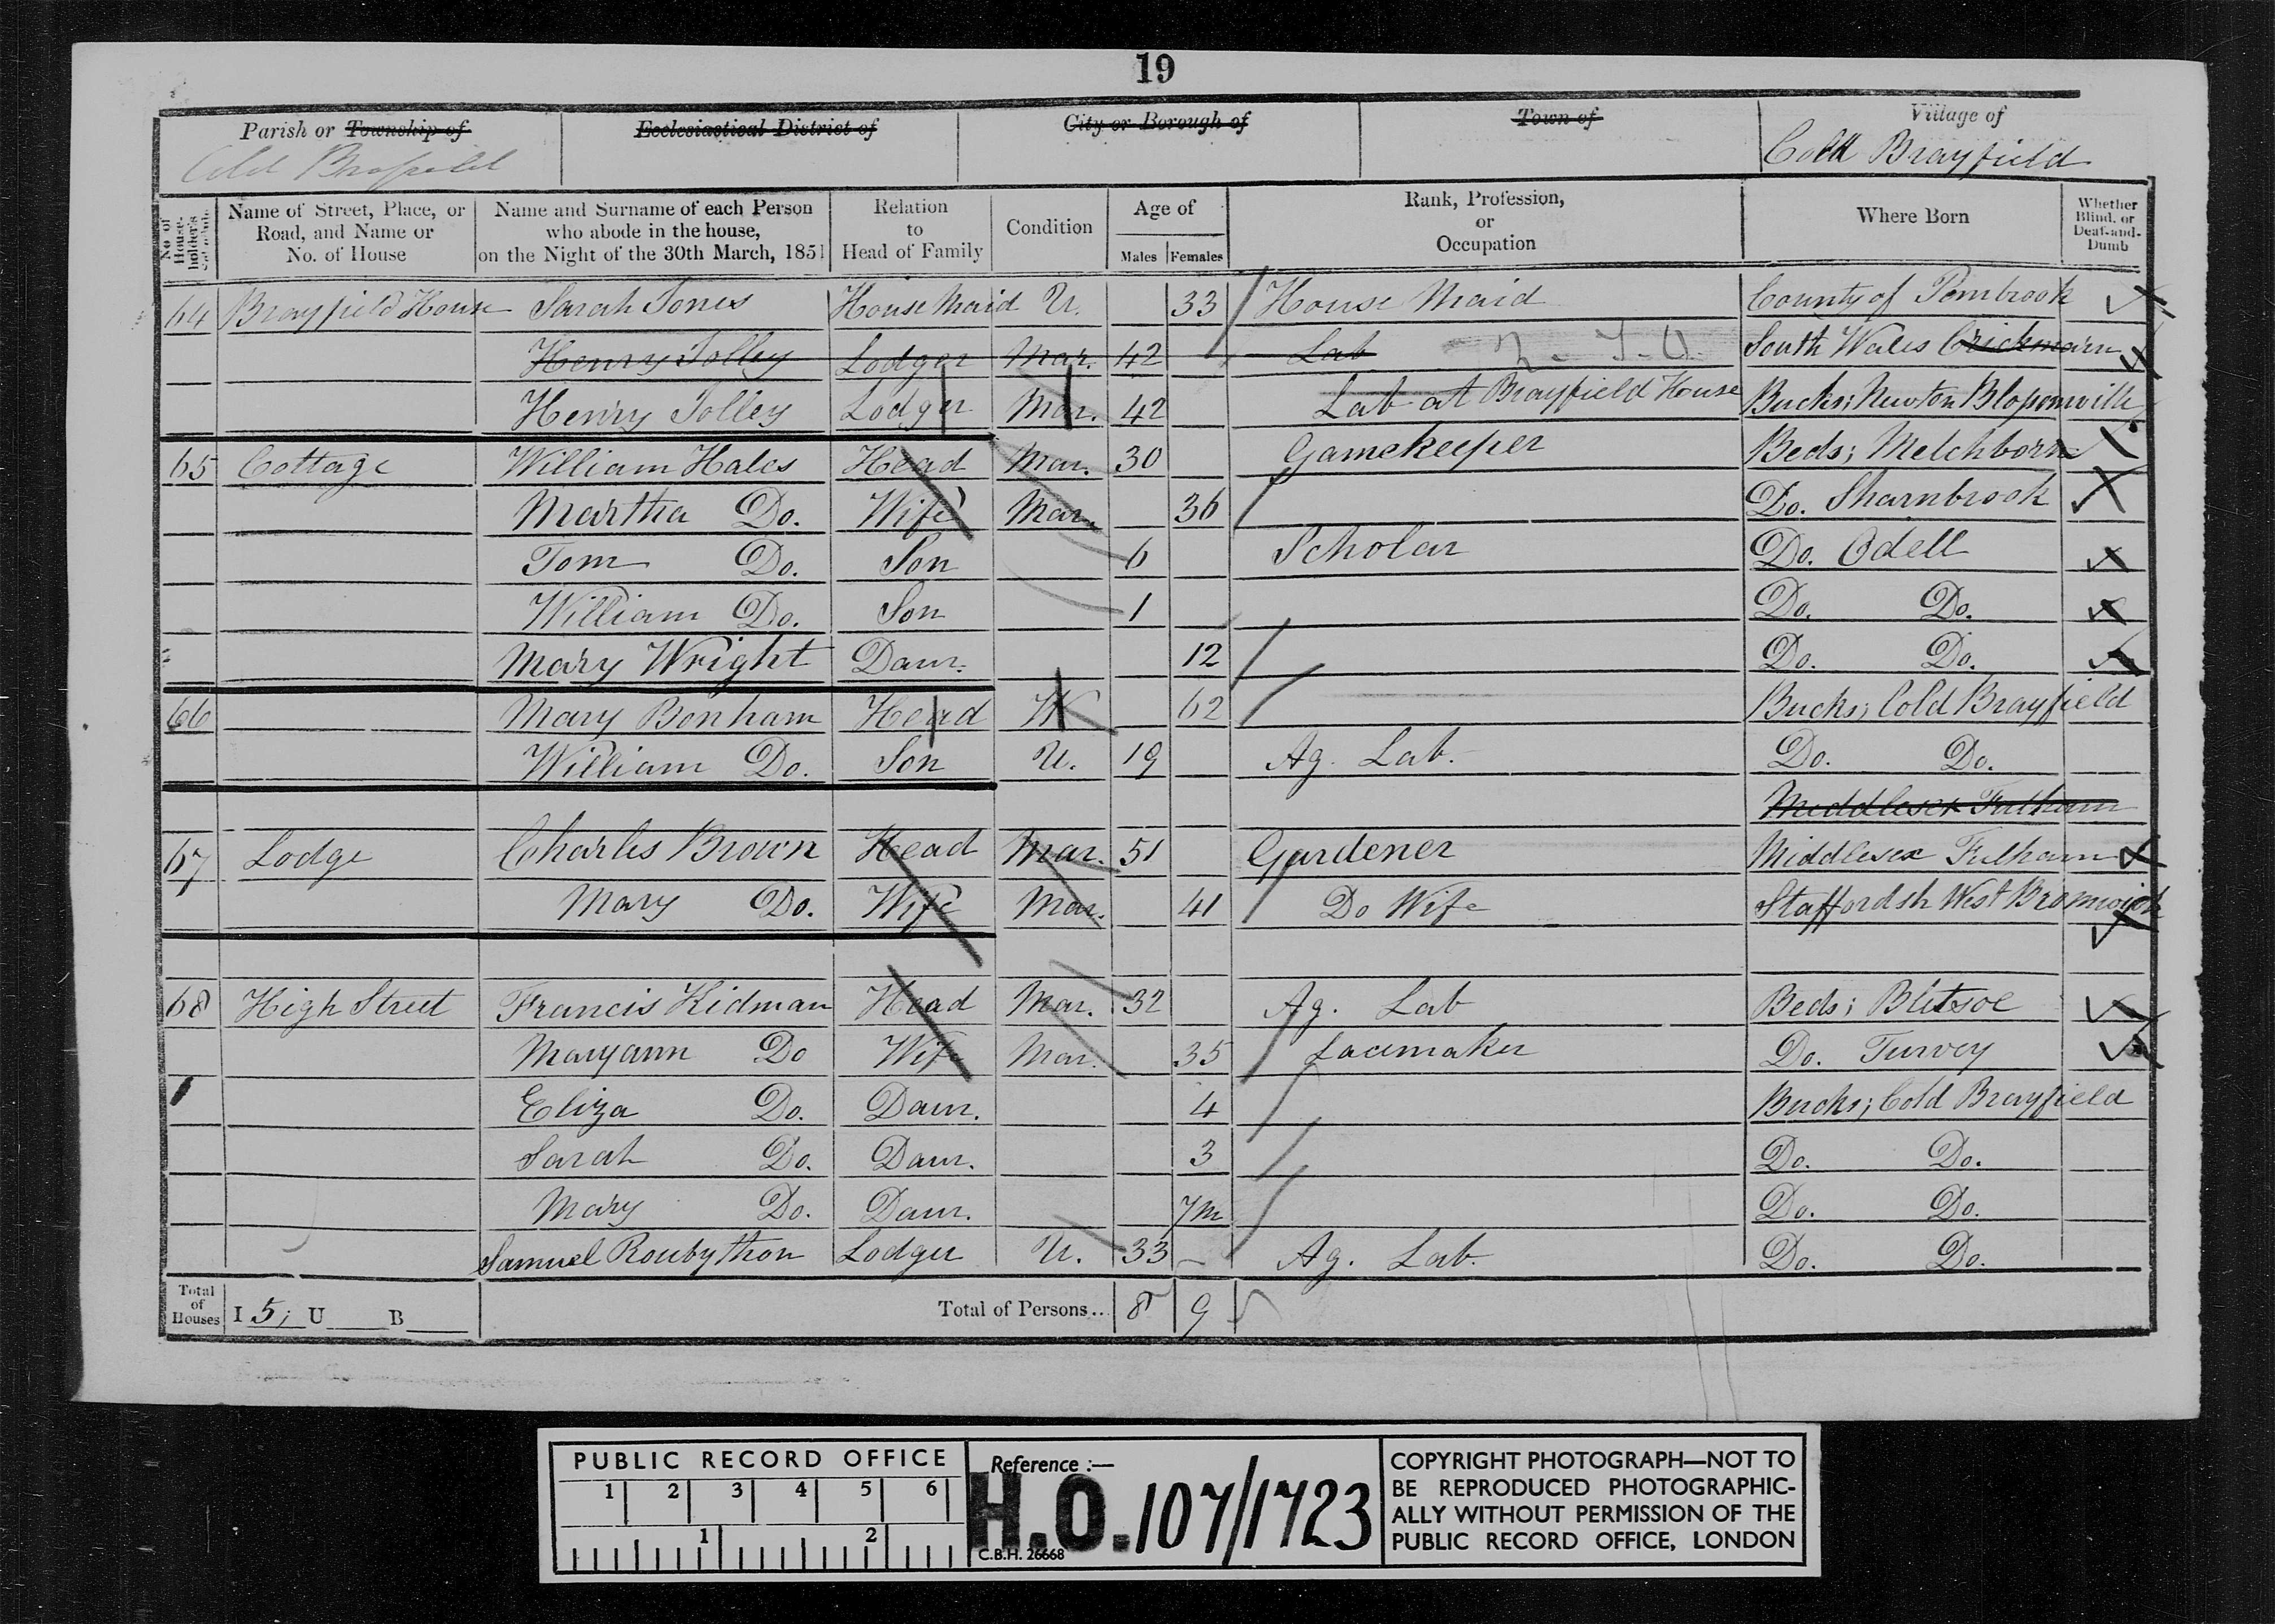 19
Parish or Township of
Ecclesiastical District of
City or Borough of
Town of
Village of
Cold Brayfield
Cold Brayfield
No. of House-holder's Schedule
Name of Street, Place, or Road, and Name or No. of House
Name and Surname of each Person who abode in the house, on the Night of the 30th March, 1851
Relation to Head of Family
Condition
Age of
Males Females
Rank, Profession, or Occupation
Where Born
Whether Blind, or Deaf-and-Dumb
64 Brayfield House Sarah Jones House Maid U. 33 House Maid County of Pembrook
Henry Tolley Lodger Mar. 42 Lab South Wales
Henry Tolley Lodger Mar. 42 Lab at Brayfield House Bucks; Newton Blosomville
65 Cottage William Hales Head Mar. 30 Gamekeeper Beds; Melchborn
Martha Do. Wife Mar. 36 Do. Sharnbrook
Tom Do. Son 6 Scholar Do. Odell
William Do. Son 1 Do. Do.
Mary Wright Daur. 12 Do. Do.
66 Mary Bonham Head W 62 Bucks; Cold Brayfield
William Do. Son U. 19 Ag. Lab. Do. Do.
Middlesex Fulham
67 Lodge Charles Brown Head Mar. 51 Gardener Middlesex Fulham
Mary Do. Wife Mar. 41 Do Wife Staffordsh West Bromwich
68 High Street Francis Kidman Head Mar. 32 Ag. Lab Beds; Bletsoe
Maryann Do Wife Mar. 35 Lacemaker Do. Turvey
Eliza Do. Daur. 4 Bucks; Cold Brayfield
Sarah Do. Daur. 3 Do. Do.
Mary Do. Daur. 7m Do. Do.
Samuel Roubython Lodger U. 33 Ag. Lab. Do. Do.
Total of Houses I 5; U B Total of Persons.. 8 9
PUBLIC RECORD OFFICE
1 2 3 4 5 6
1 2
Reference :—
H.O. 107/1723
C.B.H. 26668
COPYRIGHT PHOTOGRAPH—NOT TO
BE REPRODUCED PHOTOGRAPHIC-
ALLY WITHOUT PERMISSION OF THE
PUBLIC RECORD OFFICE, LONDON